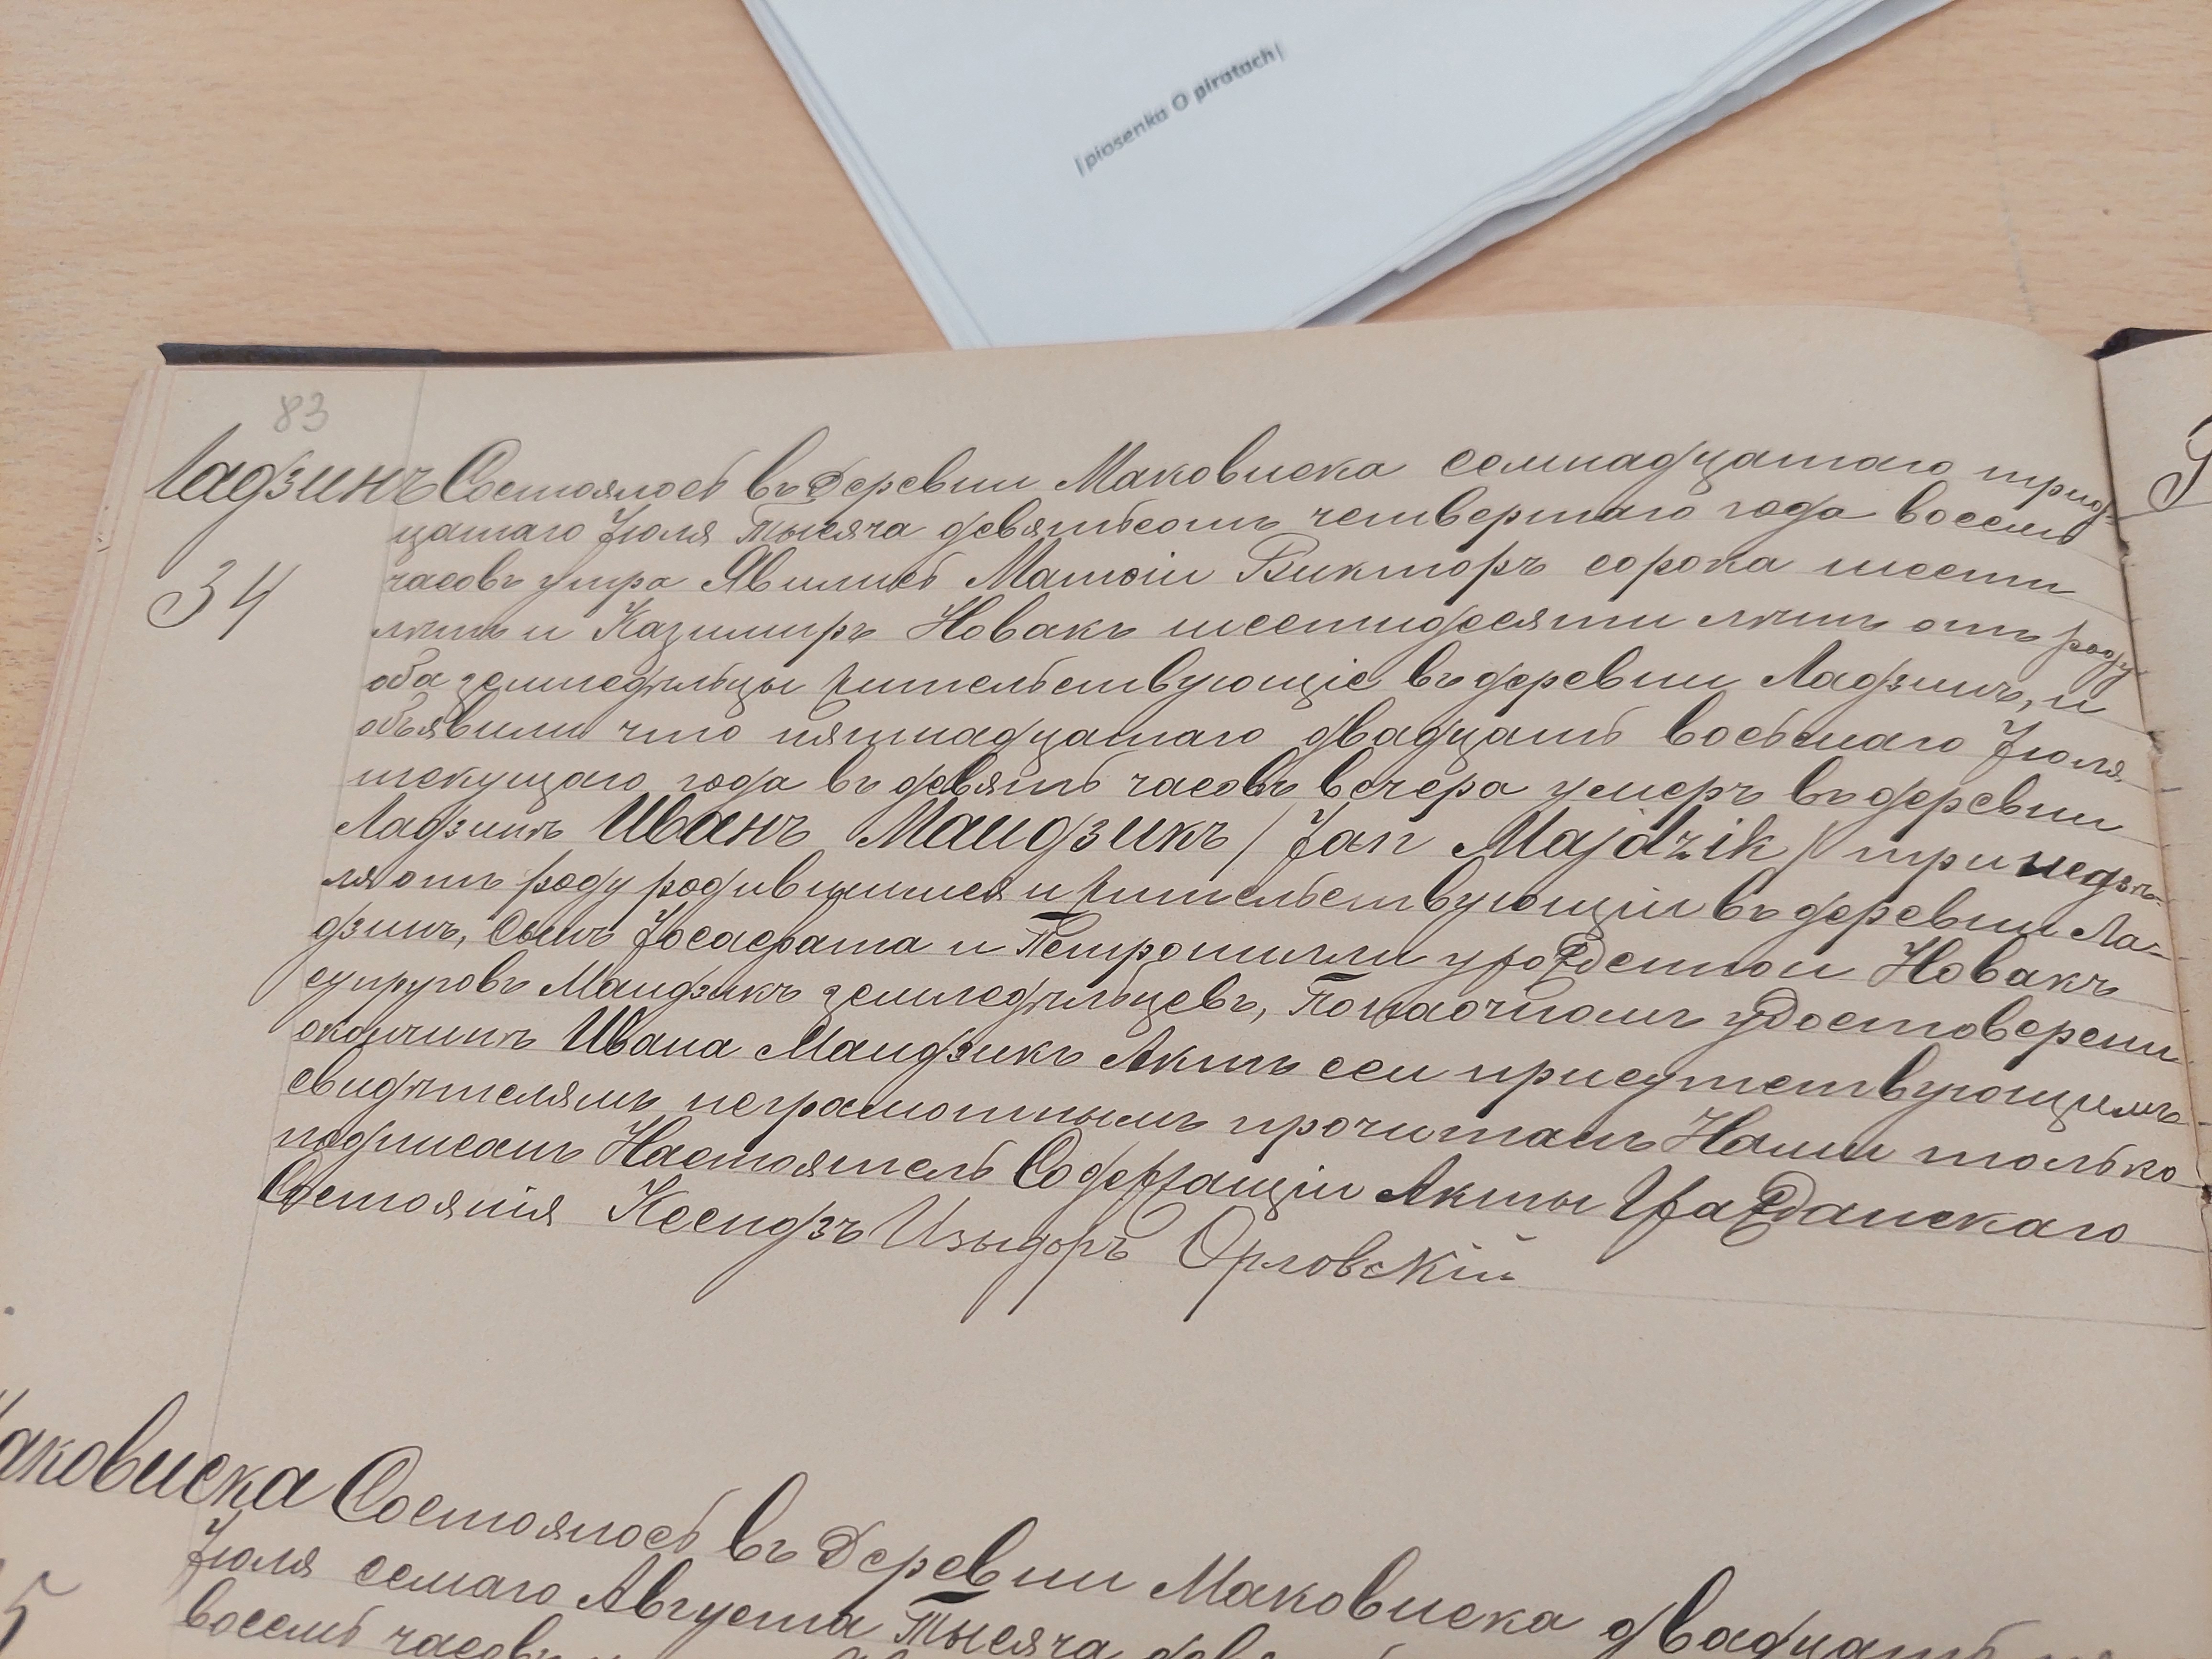 |piosenka O piratach|
83
Ладзинъ
34
Состоялось въ Деревни Маковиска семнадцатаго трид-
цатаго Іюля Тысяча девятьсотъ четвертаго года восемь
часовъ утра Явились Матѳій Викторъ сорока шести
лѣтъ и Казимиръ Новакъ шестидесяти лѣтъ отъ роду
оба земледѣльцы жительствующіе въ деревни Ладзинъ, и
объявили что пятнадцатаго двадцать восьмаго Іюля
текущаго года въ девять часовъ вечера умеръ въ деревни
Ладзинъ Иванъ Маидзикъ /Jan Majdzik/ три недѣ-
ля отъ роду родившійся и жительствующій въ деревни Ла-
дзинъ, Сынъ Іосафата и Петронилли урожденной Новакъ
супруговъ Маидзикъ земледѣльцевъ, По удостоверени
окончинѣ Ивана Маидзикъ Актъ сей присутствующимъ
свидѣтелямъ неграмотнымъ прочитанъ Нами только
подписанъ Настоятель Содержащій Акты Гражданскаго
Состоянія Ксендзъ Изыдоръ Орловскій
аковиска
5
Состоялось въ Деревни Маковиска двадцать
Іюля семаго Августа Тысяча
восемь часовъ